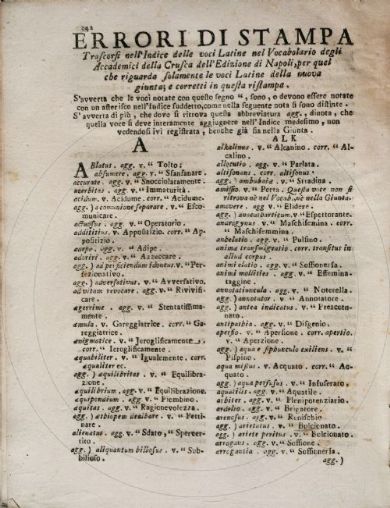 ERRORI DI STAMPA
Trascorsi nell'Indice delle voci Latine nel Vocabolario degli
Accademici della Crusca dell'Edizione di Napoli, per quel
che riguarda solamente le voci Latine della nuova
giunta; e corretti in questa ristampa.
S'avverta che le voci notate con questo segno ", sono, o devono essere notate
con un asterisco nell'Indice suddetto, come nella seguente nota si sono distinte.
S'avverta di più, che dove si ritrova questa abbreviatura agg. dinota, che
quella voce si deve interamente aggiugnere nell'Indice medesimo, non
vedendosi ivi registrata, benchè già sia nella Giunta.
A
Ablatus. agg. v. " Tolto.
absumere. agg. v. " Sfanfanare.
accurate. agg. v. " Snocciolatamente.
acerbitas. agg. v. " Immaturità.
acidum. v. Acidume. corr. " Acidume.
agg.) a communione separare. v. " Escomunicare.
actuosus. agg. v. " Operatorio.
addititius. v. Appositizio. corr. " Appositizio.
adeps. agg. v. " Adipe.
adoriri. agg. v. " Azzeccare.
agg.) ad perficiendum idoneus. v. " Perfezionativo.
agg.) adversativus. v. " Avversativo.
ad vitam revocare. agg. v. " Rivivificare.
aegerrime. agg. v. " Stentatissimamente.
aemula. v. Gareggiatrice. corr. " Gareggiatrice.
aenigmatice. v. " Jeroglificamente.
corr. " Ieroglificamente.
aequabeliter. v. " Igualmente. corr.
aequaliter ec.
agg.) aequilibritas. v. " Equilibrazione.
aequilibrium. agg. v. " Equilibrazione.
aequipondium. agg. v. " Piombino.
aequitas. agg. v. " Ragionevolezza.
agg.) alienatus. v. " Sdato, " Spervertito.
agg.) aliquantum biliosus. v. " Subbilioso.
ALK
alkalinus. v. " Alcanino. corr. " Alcalino.
allocutio. agg. v. " Parlata.
altisonans. corr. altisonus.
agg.) ambubaia. v. " Stradina.
amissio. v. " Perta. Questa voce non si
ritrova nel Vocab. nè nella Giunta.
amovere. agg. v. " Elidere.
agg.) anacatharticum. v. " Espettorante.
anangyros. v. " Maschiofemina. corr. "
Maschifemmina.
anhelatio. agg. v. " Pulsino.
animae transmigratio. corr. transitus in
aliud corpus.
animi elatio. agg. v. " Soffioneria.
animi mollities. agg. v. " Effeminataggine.
annotatiuncula. agg. v. " Noterella.
agg.) annotator. v. " Annotatore.
agg.) antea indicatus. v. " Preaccennato.
antipathia. agg. v. " Disgenio.
apersio. v. " Apersione. corr. apertio.
v. " Apersione.
agg.) aqua e siphunculo exiliens. v. "
Pispino.
aqua mistus. v. Acquato. corr. " Acquato.
agg.) aqua perfusus. v. " Infuserato.
aquatilis. agg. v. " Aquatile.
arbiter. agg. v. " Plenipotenziario.
ardelio. agg. v. " Brigatore.
arenosus. agg. v. " Renischio.
agg.) arietatus. v. " Bolcionato.
agg.) ariete petitus. v. " Bolcionato.
arrogans. agg. v. " Soffione.
arrogantia. agg. v. " Soffioneria.
agg.)